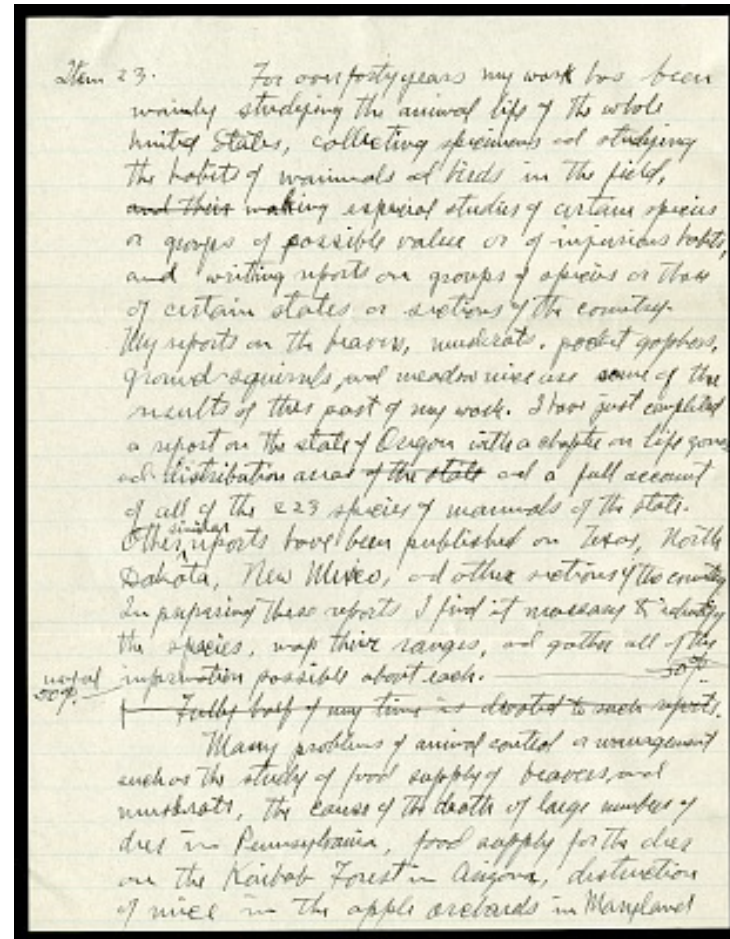 Item 23. For over forty years my work has been
mainly studying the animal life of the whole
United States, collecting specimens and studying
the habits of mammals and birds in the field,
and their making especial studies of certain species
or groups of possible value or of injurious habits,
and writing reports on groups of species or those
of certain states or sections of the country.
My reports on the beavers, muskrats, pocket gophers,
ground-squirrels, and meadow mice are some of the
results of this part of my work. I have just completed
a report on the state of Oregon with a chapter on life zones
and distribution areas of the state and a full account
of all of the 223 species of mammals of the state.
Other similar reports have been published on Texas, North
Dakota, New Mexico, and other sections of the country
In preparing these reports I find it necessary to identify
the species, map their ranges, and gather all of the
information possible about each. 50%
50%.
Fully half of my time is devoted to such reports.
Many problems of animal control or management
such as the study of food supply of beavers, and
muskrats, the cause of the death of large numbers of
deer in Pennsylvania, food supply for the deer
on the Kaibab Forest in Arizona, destruction
of mice in the apple orchards in Maryland